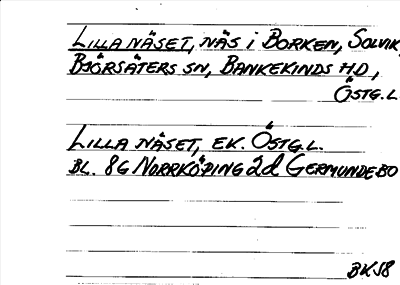 LILLA NÄSET, NÄS I BORKEN, SOLVIK,
BJÖRSÄTERS SN, BANKEKINDS HD,
ÖSTG.L.
LILLA NÄSET, EK. ÖSTG.L.
BL. 8G NORRKÖPING 2d GERMUNDEBO
BKJ8